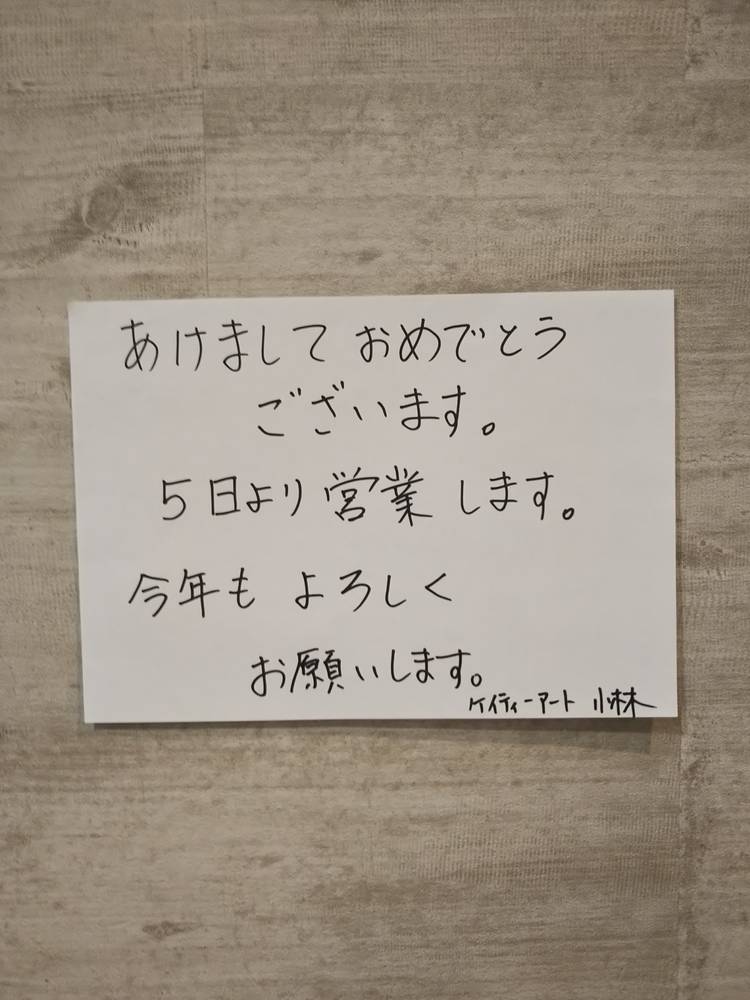 あけまして おめでとう
ございます。
5日より 営業 します。
今年も よろしく
お願いします。
ケイティーアート 小林